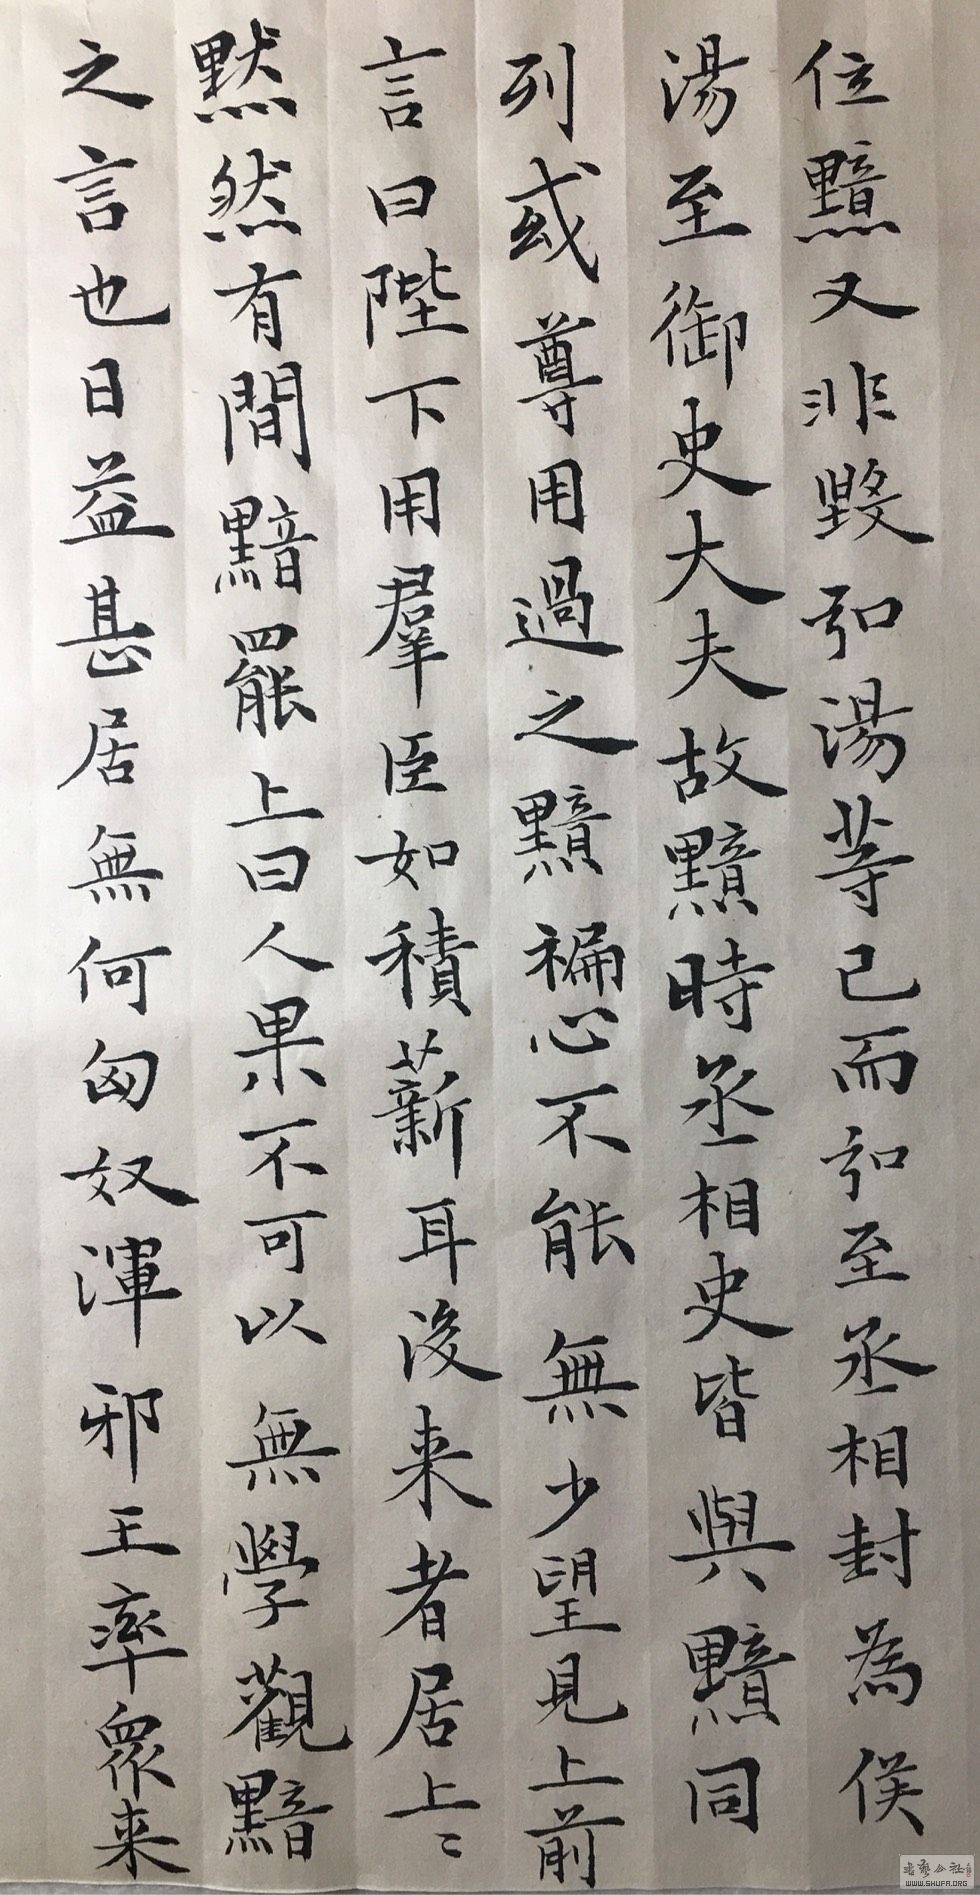 位黯又非毀弘湯等已而弘至丞相封為侯
湯至御史大夫故黯時丞相史皆與黯同
列或尊用過之黯褊心不能無少望見上前
言曰陛下用羣臣如積薪耳後来者居上〻
默然有間黯罷上曰人果不可以無學觀黯
之言也日益甚居無何匈奴渾邪王率眾来
書藝公社
WWW.SHUFA.ORG